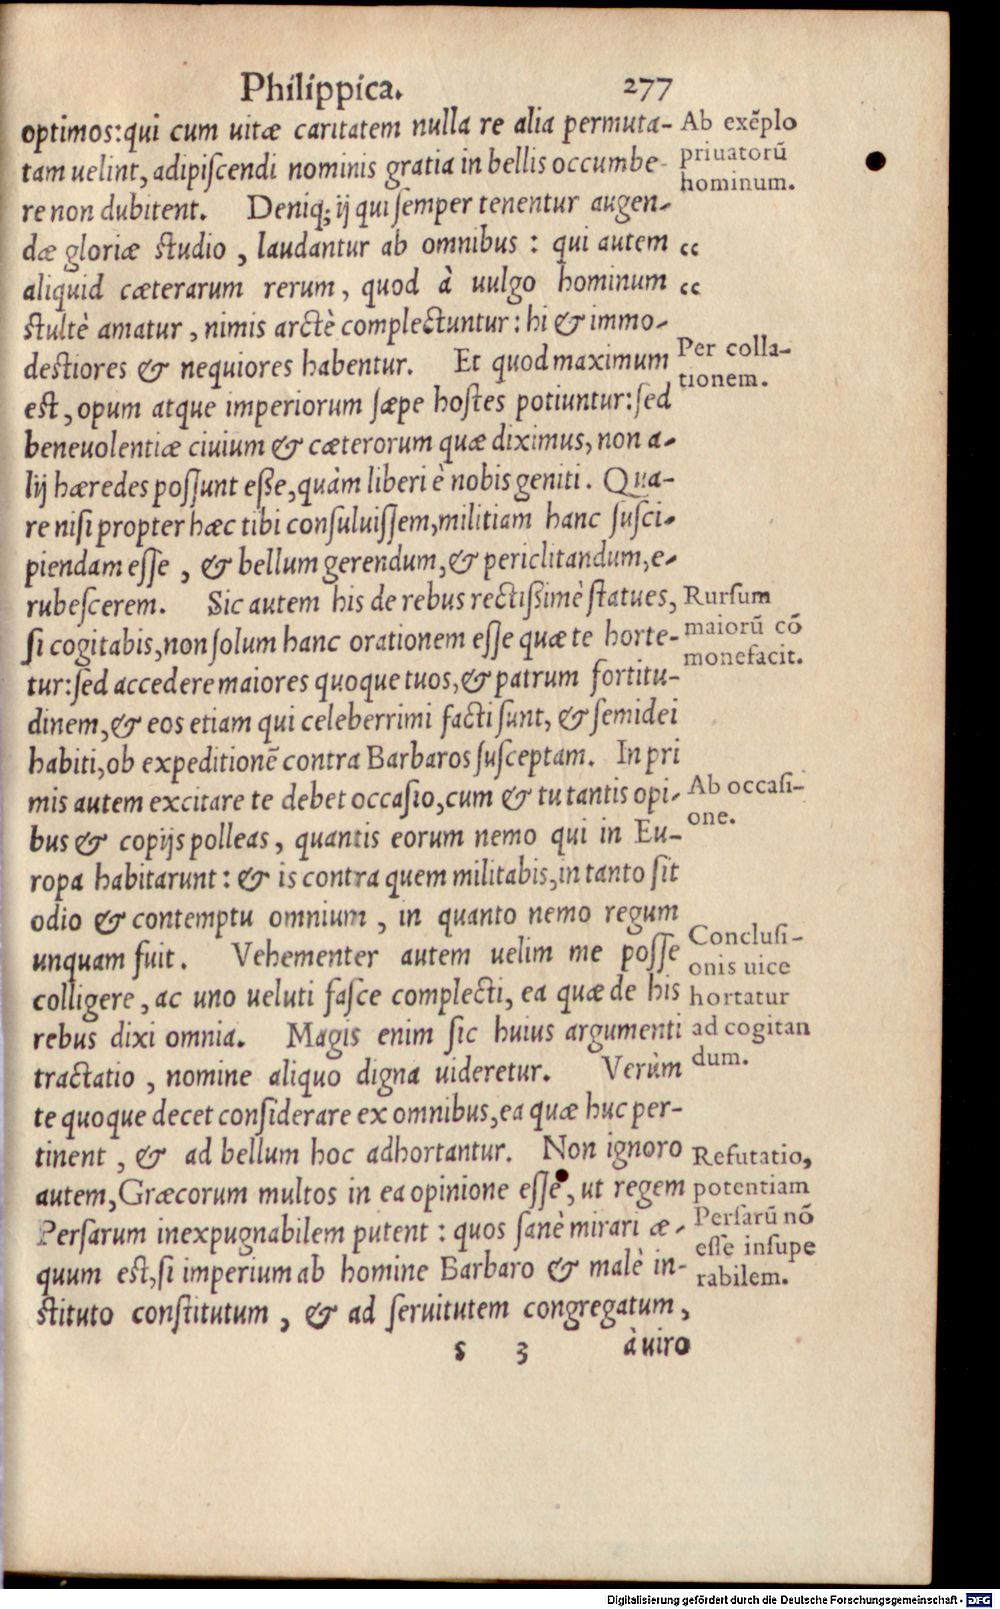 Philippica. 277
optimos: qui cum uitæ caritatem nulla re alia permuta-
tam uelint, adipiſcendi nominis gratia in bellis occumbe-
re non dubitent. Deniq; ij qui ſemper tenentur augen-
dæ gloriæ ſtudio, laudantur ab omnibus: qui autem
aliquid cæterarum rerum, quod à uulgo hominum
ſtultè amatur, nimis arctè complectuntur: hi & immo-
deſtiores & nequiores habentur. Et quod maximum
eſt, opum atque imperiorum ſæpe hoſtes potiuntur: ſed
beneuolentiæ ciuium & cæterorum quæ diximus, non a-
lij hæredes poſſunt eſſe, quàm liberi è nobis geniti. Qua-
re niſi propter hæc tibi conſuluiſſem, militiam hanc ſuſci-
piendam eſſe, & bellum gerendum, & periclitandum, e-
rubeſcerem. Sic autem his de rebus rectißimè ſtatues,
ſi cogitabis, non ſolum hanc orationem eſſe quæ te horte-
tur: ſed accedere maiores quoque tuos, & patrum fortitu-
dinem, & eos etiam qui celeberrimi facti ſunt, & ſemidei
habiti, ob expeditionẽ contra Barbaros ſuſceptam. In pri
mis autem excitare te debet occaſio, cum & tu tantis opi-
bus & copijs polleas, quantis eorum nemo qui in Eu-
ropa habitarunt: & is contra quem militabis, in tanto ſit
odio & contemptu omnium, in quanto nemo regum
unquam fuit. Vehementer autem uelim me poſſe
colligere, ac uno ueluti faſce complecti, ea quæ de his
rebus dixi omnia. Magis enim ſic huius argumenti
tractatio, nomine aliquo digna uideretur. Verùm
te quoque decet conſiderare ex omnibus, ea quæ huc per-
tinent, & ad bellum hoc adhortantur. Non ignoro
autem, Græcorum multos in ea opinione eſſe, ut regem
Perſarum inexpugnabilem putent: quos ſanè mirari æ-
quum eſt, ſi imperium ab homine Barbaro & malè in-
ſtituto conſtitutum, & ad ſeruitutem congregatum,
s 3 à uiro
Ab exẽplo
priuatorũ
hominum.
“
“
Per colla-
tionem.
Rurſum
maiorũ cõ
monefacit.
Ab occaſi-
one.
Concluſi-
onis uice
hortatur
ad cogitan
dum.
Refutatio,
potentiam
Perſarũ nõ
eſſe inſupe
rabilem.
Digitalisierung gefördert durch die Deutsche Forschungsgemeinschaft - DFG